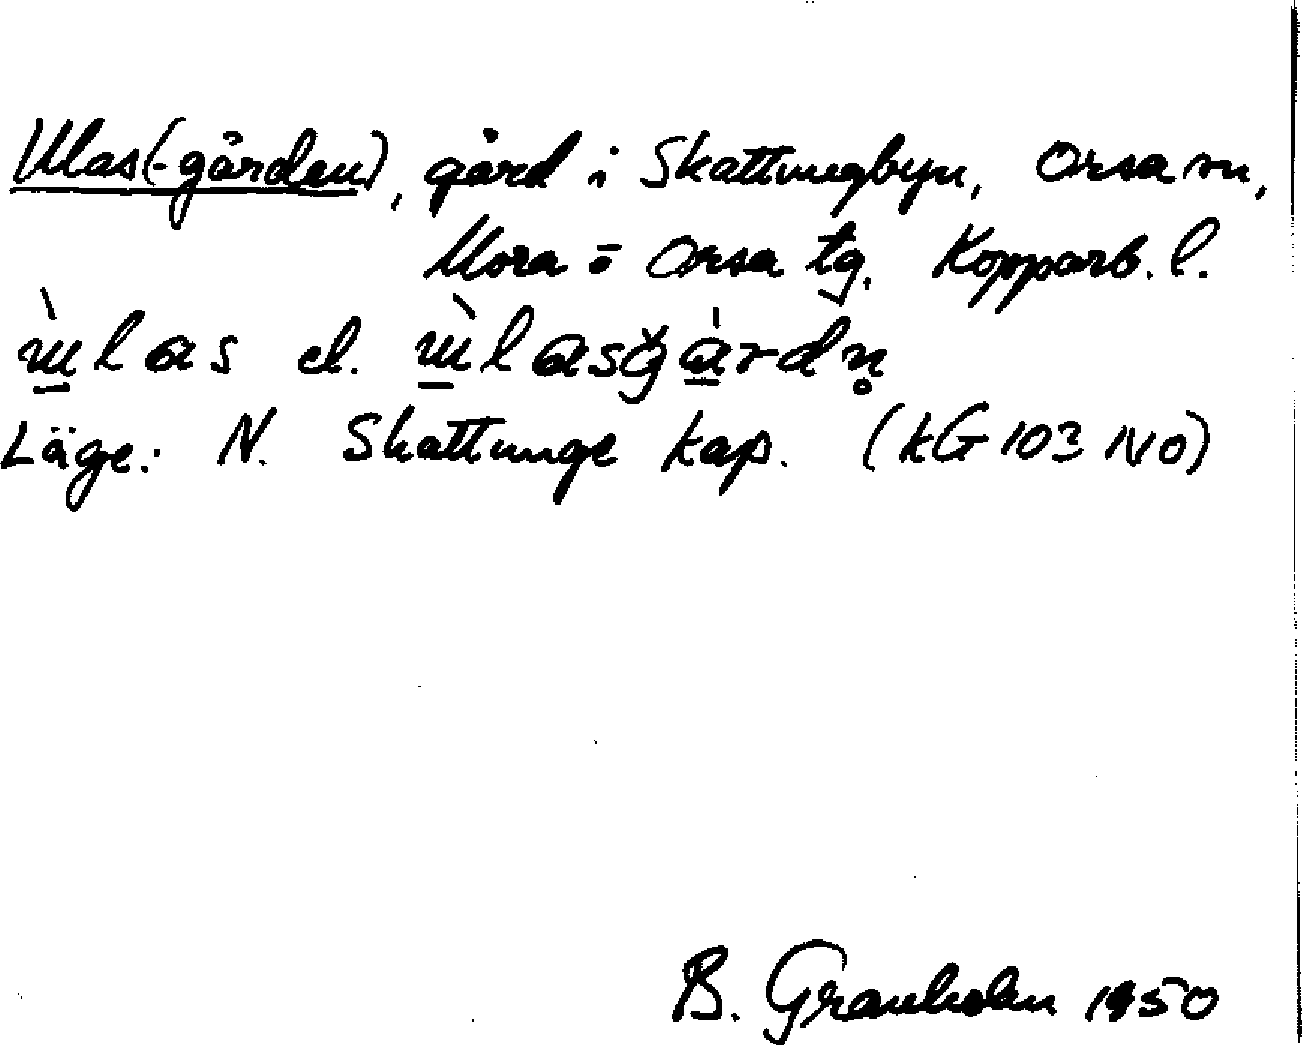 Ulas(-gården), gård i Skattungbyn, Orsa sn,
Mora o Orsa tg. Kopparb. l.
el.
Läge: N. Skattunge kap. (kG 103 NO)
B. Granholm 1950